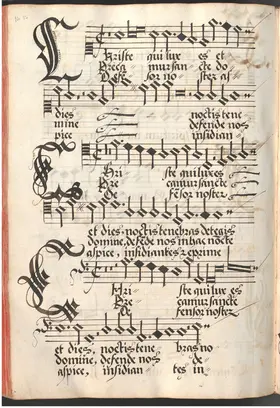 Christe qui lux es et
Precamur sancte do
Defensor noster as
dies noctis tene
mine defende nos
pice insidian
Christe qui lux es
Precamur sancte
Defensor noster
et dies noctis tenebras detegis
domine, defede nos in hac nocte
aspice, insidiantes reprime
Christe qui lux es
Precamur sancte
Defensor noster
et dies, noctis tene bras no
domine, defende nos &
aspice, insidian tes in